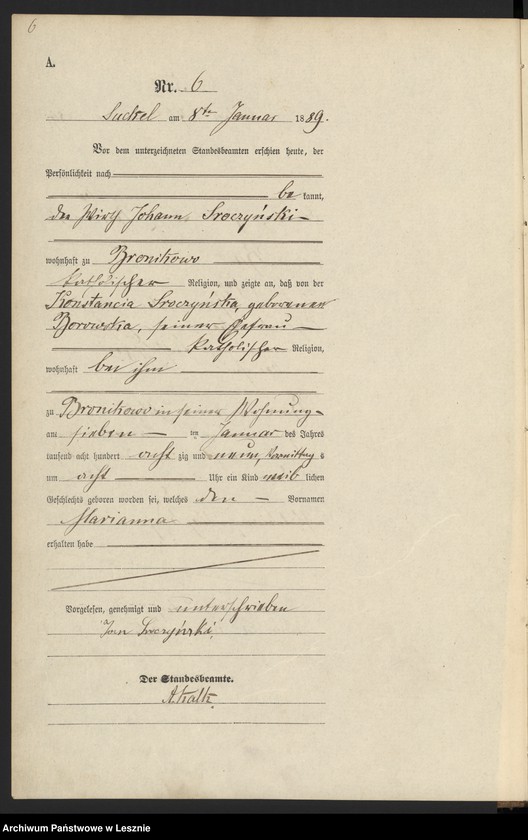 6
A.
Nr. 6
am 8ten Januar 1889.
Vor dem unterzeichneten Standesbeamten erschien heute, der
Persönlichkeit nach
be kannt,
der Wirth Johann Sroczyński
wohnhaft zu Bronikowo
katholischer Religion, und zeigte an, daß von der
Konstancia Sroczyńska, geborenen
Borowska, seiner Ehefrau
katholischer Religion,
wohnhaft bei ihm
zu Bronikowo in seiner Wohnung
am sieben ten Januar des Jahres
tausend acht hundert acht zig und neun, Vormittag s
um acht Uhr ein Kind weib lichen
Geschlechts geboren worden sei, welches den Vornamen
Marianna
erhalten habe
Vorgelesen, genehmigt und unterschrieben
Jan Sroczyński
Der Standesbeamte.
Archiwum Państwowe w Lesznie